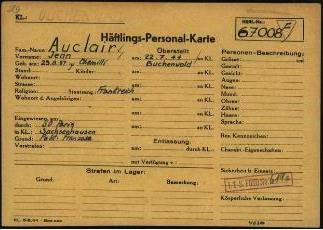 KL.:
Häftl.-Nr.:
67008 F
Häftlings-Personal-Karte
Fam.-Name: Auclair
Vorname: Jean
Geb. am: 25.8.97 Chemille
Stand: Kinder:
Wohnort:
Strasse:
Religion: Staatsang.: Frankreich
Wohnort d. Angehörigen:
Eingewiesen am:
durch: SD Paris
in KL.: Sachsenhausen
Grund: Polit. Franzose
Vorstrafen:
Überstellt
am: 22.7.44 an KL.
Buchenwald
am: an KL.
am: an KL.
am: an KL.
am: an KL.
am: an KL.
Entlassung:
am: durch KL.:
mit Verfügung v.:
Personen-Beschreibung:
Grösse:
Gestalt:
Gesicht:
Augen:
Nase:
Mund:
Ohren:
Zähne:
Haare:
Sprache:
Bes. Kennzeichen:
Charakt.-Eigenschaften:
Sicherheit b. Einsatz:
I.T.S. FOTO No.
Körperliche Verfassung:
Strafen im Lager:
Grund: Art: Bemerkung: